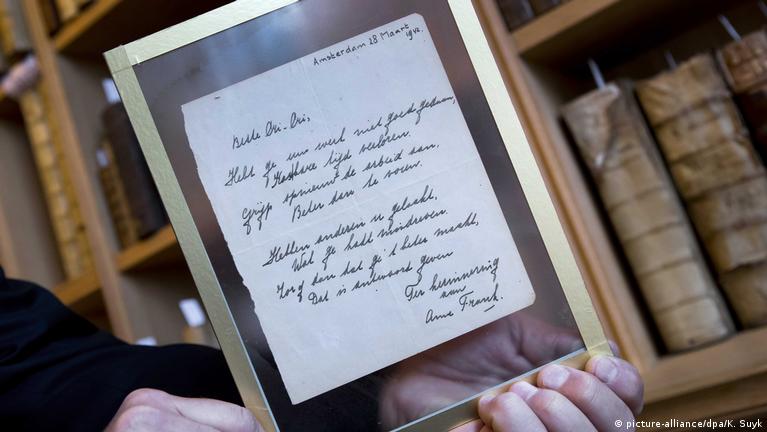 Amsterdam 28 Maart
1942.
Beste Cri-Cri,
Hebt ge uw werk niet goed gedaan,
Kostbare tijd verloren.
Grijp opnieuw de arbeid aan,
Beter dan te voren.
Hebben anderen u gelaakt,
Wat ge hadt misdreven.
Zorg dan dat ge 't beter maakt,
Dat is antwoord geven
Ter herinnering
van
Anne Frank.
© picture-alliance/dpa/K. Suyk